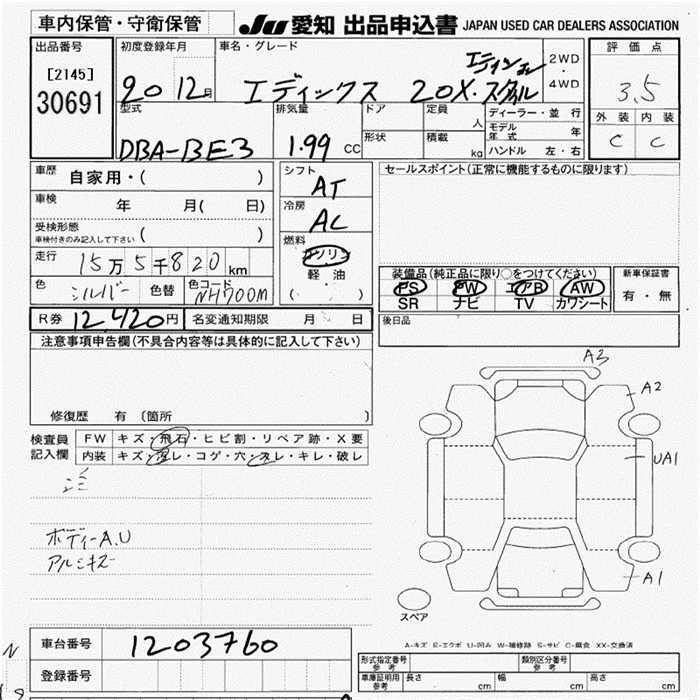 車内保管・守衛保管
JU 愛知 出品申込書 JAPAN USED CAR DEALERS ASSOCIATION
出品番号 初度登録年月 車名・グレード 2WD・4WD 評価点
[2145]
30691
20 12月 エディックス 20X・スタイル
エディション
3.5
外装 内装
C C
型式 排気量 ドア 定員 人 ディーラー・並行
形状 積載 kg モデル年式 年
ハンドル 左・右
DBA-BE3 1.99 CC
車歴 自家用・( )
車検 年 月( 日)
受検形態 ( )
車検付きのみ記入して下さい
走行 15万5千820km
色 シルバー 色替 色コード NH700M
シフト AT
冷房 AC
燃料 ガソリン
軽油
( ・ )
セールスポイント(正常に機能するものに限ります)
装備品(純正品に限り○をつけてください) 新車保証書
PS PW エアB AW 有・無
SR ナビ TV カワシート
後日品
R券 12,420円 名変通知期限 月 日
注意事項申告欄(不具合内容等は具体的に記入して下さい)
修復歴 有 〔箇所 〕
検査員記入欄
FW キズ・飛石・ヒビ割・リペア跡・X要
内装 キズ・汚レ・コゲ・穴・スレ・キレ・破レ
ボディーA.U
アルミキズ
A3
A2
UA1
A1
スペア
A-キズ E-エクボ U-凹み W-補修跡 S-サビ C-腐食 XX-交換済
車台番号 1203760
登録番号
型式指定番号 参考 類別区分番号 参考
車庫証明用 参考 長さ cm 幅 cm 高さ cm
N